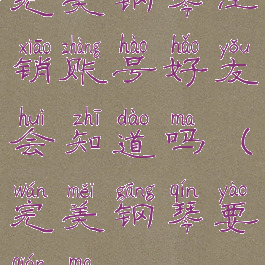 完美钢琴注
xiāo zhàng hào hǎo yǒu
销账号好友
huì zhī dào ma
会知道吗（
wán měi gāng qín yào
完美钢琴要
wán ma